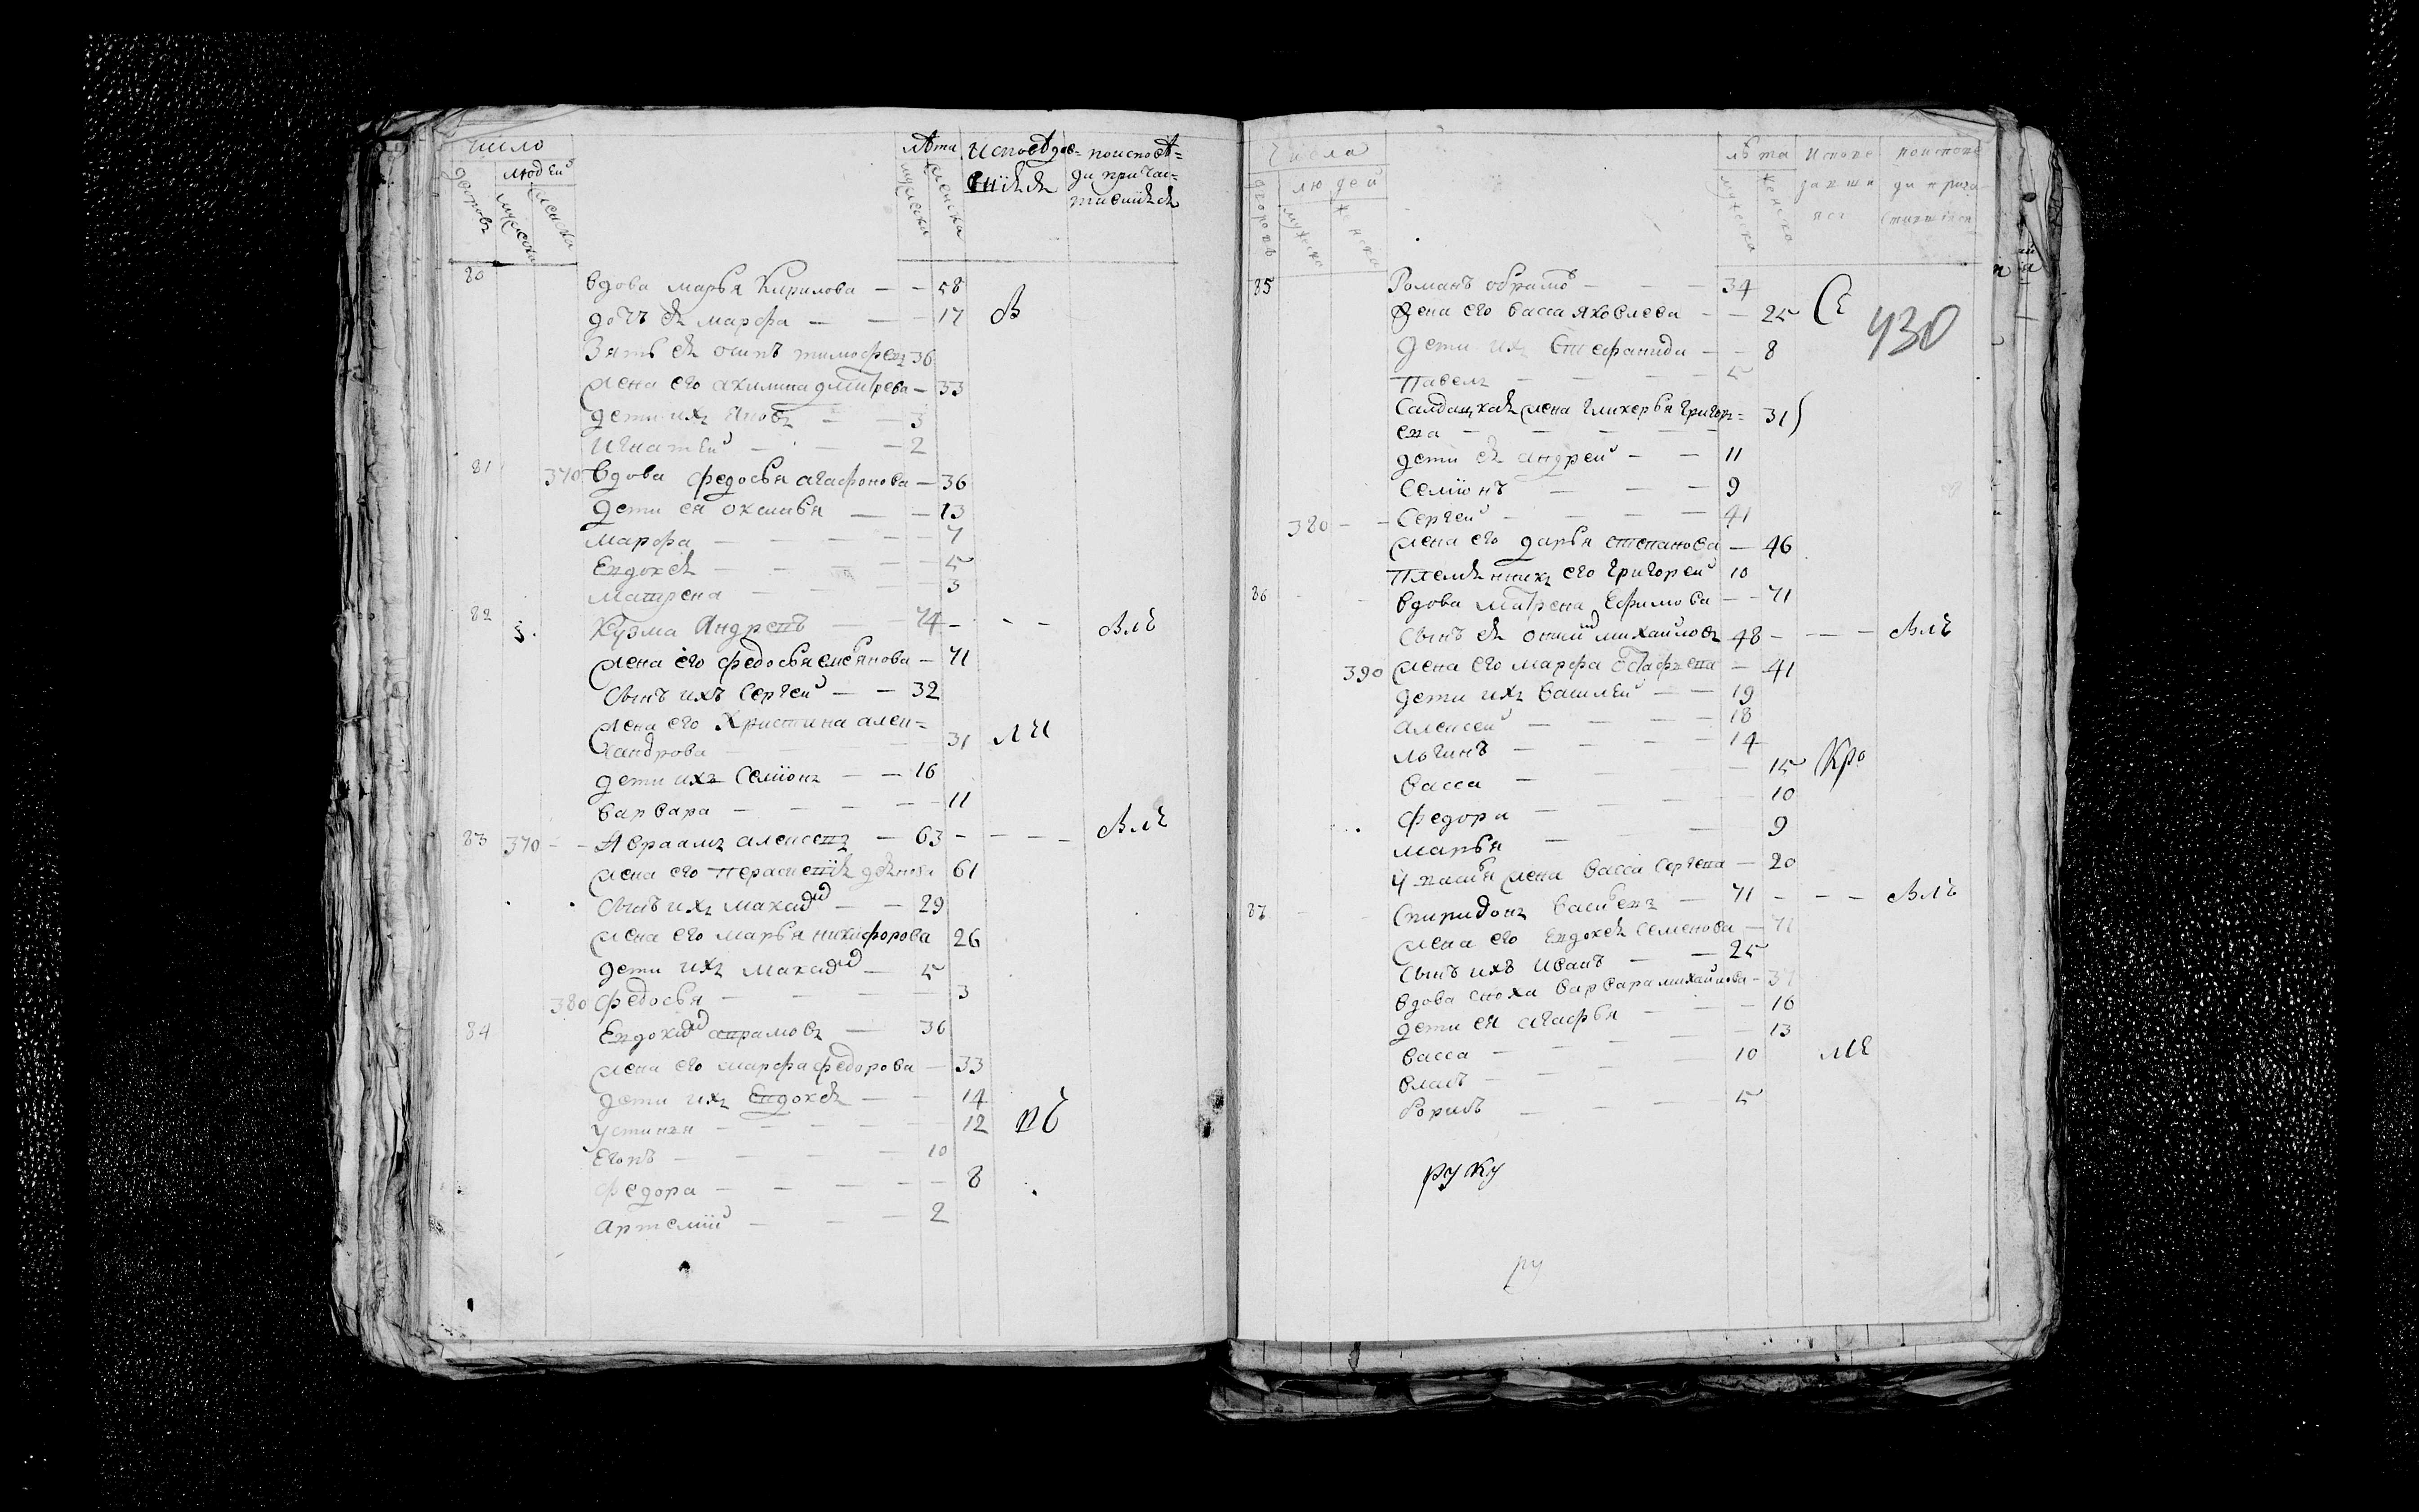 число
людей
дворовъ
мужеска
женска
лѣта
мужеска
женска
Исповѣдав-
шїися
поисповѣ-
ди причас-
тившїися
80
вдова марья Кирилова — — 58
дочь ея марфа — — — 17 В
Зять ея осипъ тимофеевъ 36
жена его акилина дмитрева — 33
дети ихъ Яковъ — — 3
Игнатеи — — — 2
81 370 вдова федосья агафонова — 36
дети ея оксинья — — 13
марфа — — — — — 7
Евдокея — — — — 5
матрена — — — 3
82 Кузма Андреевъ — — 74 — — — вмѣ
жена его федосья емельянова — 71
сынъ ихъ Сергеи — — 32
жена его Христина алек-
сандрова — — 31
дети ихъ Семїонъ — — 16
варвара — — — — — 11
83 370 — — Авраамъ алексеевъ — 63 — — — вмѣ
жена его Парасковїя 61
сынъ ихъ макаръ — — 29
жена его марья никифорова 26
дети ихъ макаръ — 5
380 федосья — — — — 3
84 Евдоким аврамовъ — 36
жена его марфа федорова — 33
дети ихъ Евдокея — — 14
устинья — — — — — 12
Егоръ — — — — 10
федора — — — — — 8
артемїи — — — 2
числа
людей
дворовъ
мужеска
женска
лѣта
мужеска
женска
Испове
давши
яся
поиспове
ди прича
стившїися
85 Романъ обрамовъ — — — 34
Жена его васса яковлева — — 25
430
дети ихъ Стефанида — — 8
Павелъ — — — — 5
Салдацкая жена гликерья григорь-
ева — — — — — 31
дети ея андреи — — 11
Семїонъ — — — 9
380 — — Сергеи — — — — 41
жена его дарья степанова — 46
Племянникъ его григореи 10
86 — — вдова матрена Ефимова — — 71
Сынъ ея михаиловъ 48 — — — вмѣ
390 жена его марфа — 41
дети ихъ василеи — — 19
алексеи — — — — 18
логинъ — — — — 14
васса — — 15 Кро
федора — — — — 10
марья — — 9
жена васса сергеева — 20
87 — — Спиридонъ васильевъ — 71 — — — вмѣ
жена его Евдокея семенова — 71
сынъ ихъ иванъ — — 25
вдова сноха варвара михаилова — 37
дети ея агафья — — — 16
васса — — — — — 13
власъ — — — — 10
— — — 5
руку
ру